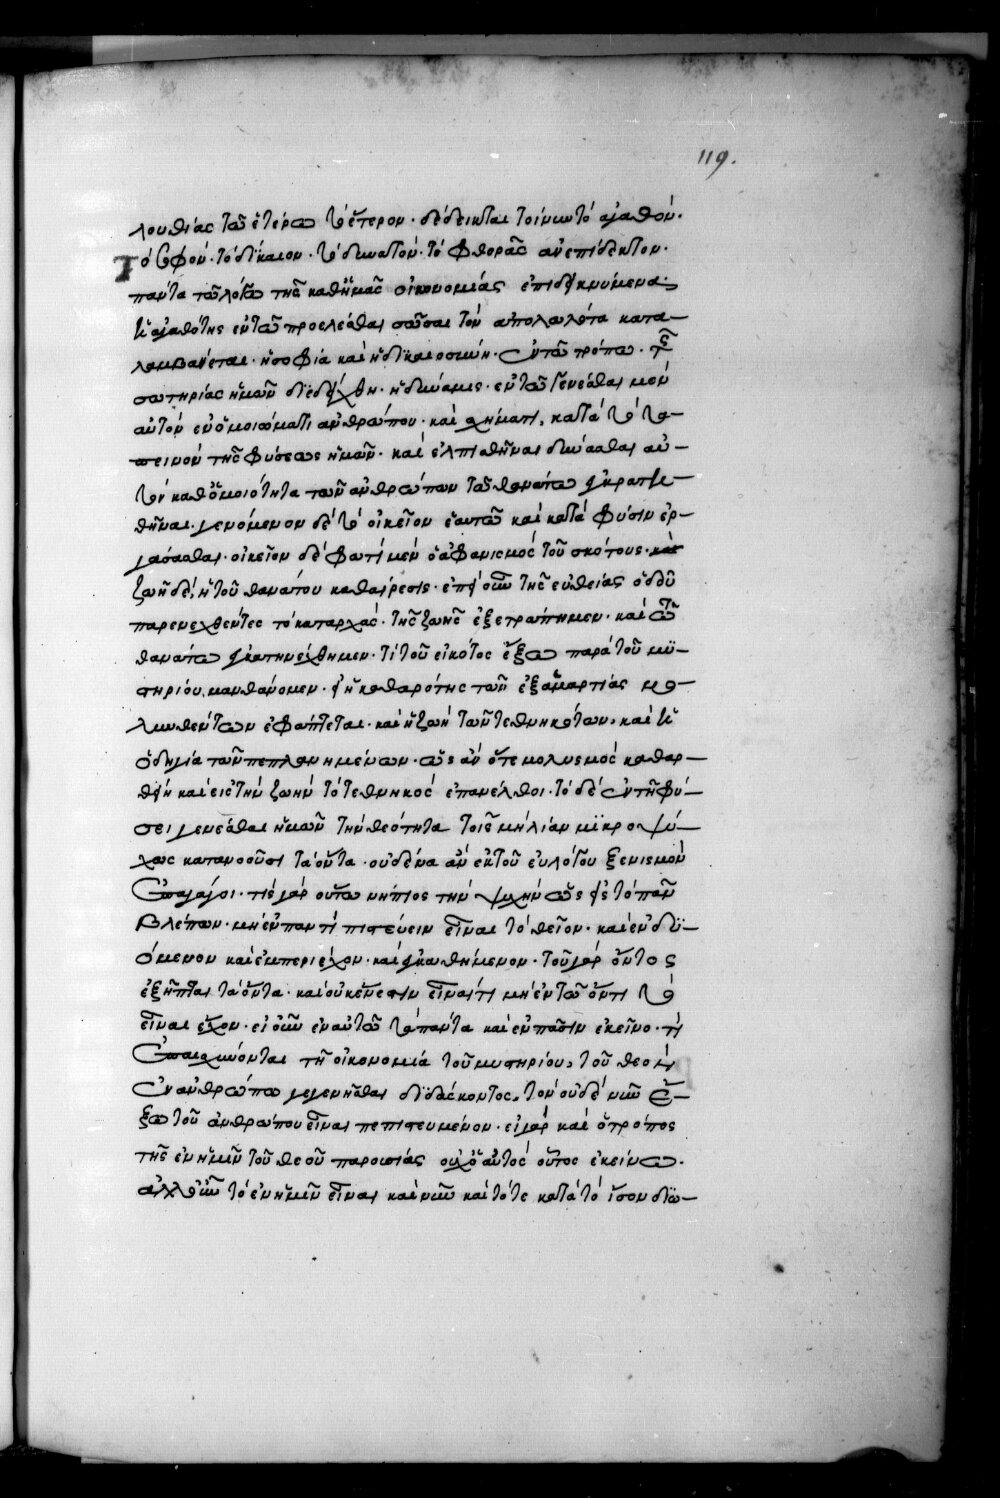 119.
λουθίας τῶ ἑτέρω τὸ ἕτερον · δέδεικται τοίνυν τὸ ἀγαθόν ·
τὸ σοφόν · τὸ δίκαιον · τὸ δυνατόν · τὸ φθορᾶς ἀνεπίδεκτον ·
πάντα τῶ λόγω τῆς καθ' ἡμᾶς οἰκονομίας ἐπιδεικνύμενα ·
ἡ ἀγαθότης ἐν τῶ προελέσθαι σῶσαι τὸν ἀπολωλότα κατα-
λαμβάνεται · ἡ σοφία καὶ ἡ δικαιοσύνη · ἐν τῶ τρόπω · τῆς
σωτηρίας ἡμῶν διεδείχθη · ἡ δύναμις · ἐν τῶ γενέσθαι μὲν
αὐτὸν ἐν ὁμοιώματι ἀνθρώπου · καὶ σχήματι, κατὰ τὸ τα-
πεινὸν τῆς φύσεως ἡμῶν · καὶ ἐλπισθῆναι δύνασθαι αὐ-
τὸν καθ' ὁμοιότητα τῶν ἀνθρώπων τῶ θανάτω ἐγκρατη-
θῆναι · γενόμενον δὲ τὸ οἰκεῖον ἑαυτῶ καὶ κατὰ φύσιν ἐρ-
γάσασθαι · οἰκεῖον δὲ φωτὶ μὲν ὁ ἀφανισμὸς τοῦ σκότους ·
ζωῆ δὲ, ἡ τοῦ θανάτου καθαίρεσις · ἐπεὶ οὖν τῆς εὐθείας ὁδοῦ
παρενεχθέντες τὸ καταρχὰς · τῆς ζωῆς ἐξετράπημεν · καὶ τῶ
θανάτω ἐγκατηνέχθημεν · τί τοῦ εἰκότος ἔξω παρὰ τοῦ μυ-
στηρίου μανθάνομεν · εἰ ἡ καθαρότης τῶν ἐξ ἁμαρτίας μο-
λυνθέντων ἐφάπτεται · καὶ ἡ ζωὴ τῶν τεθνηκότων, καὶ ἡ
ὁδηγία τῶν πεπλανημένων · ὡς ἂν ὅτε μολυσμὸς καθαρ-
θείη καὶ εἰς τὴν ζωὴν τὸ τεθνηκὸς ἐπανέλθοι · τὸ δὲ ἐν τῆ φύ-
σει γενέσθαι ἡμῶν τὴν θεότητα τοῖς μὴ λίαν μικροψύ-
χως κατανοοῦσι τὰ ὄντα · οὐδένα ἂν ἐκ τοῦ εὐλόγου ξενισμὸν
ἐπαγάγοι · τίς γὰρ οὕτω νήπιος τὴν ψυχὴν ὡς εἰς τὸ πᾶν
βλέπων · μὴ ἐν παντὶ πιστεύειν εἶναι τὸ θεῖον · καὶ ἐνδυ-
όμενον καὶ ἐμπεριέχον · καὶ ἐγκαθήμενον · τοῦ γὰρ ὄντος
ἐξῆπται τὰ ὄντα · καὶ οὐκ ἔνεστιν εἶναί τι μὴ ἐν τῶ ὄντι τὸ
εἶναι ἔχον · εἰ οὖν ἐν αὐτῶ τὰ πάντα καὶ ἐν πᾶσιν ἐκεῖνο · τί
ἐπαισχύνονται τῆ οἰκονομία τοῦ μυστηρίου, τοῦ θεὸν
ἐν ἀνθρώπω γεγενῆσθαι διδάσκοντος, τὸν οὐδὲ νῦν ἔ-
ξω τοῦ ἀνθρώπου εἶναι πεπιστευμένον · εἰ γὰρ καὶ ὁ τρόπος
τῆς ἐν ἡμῖν τοῦ θεοῦ παρουσίας οὐχ ὁ αὐτὸς οὗτος ἐκείνω ·
ἀλλ' οὖν τὸ ἐν ἡμῖν εἶναι καὶ νῦν καὶ τότε κατὰ τὸ ἴσον διω-